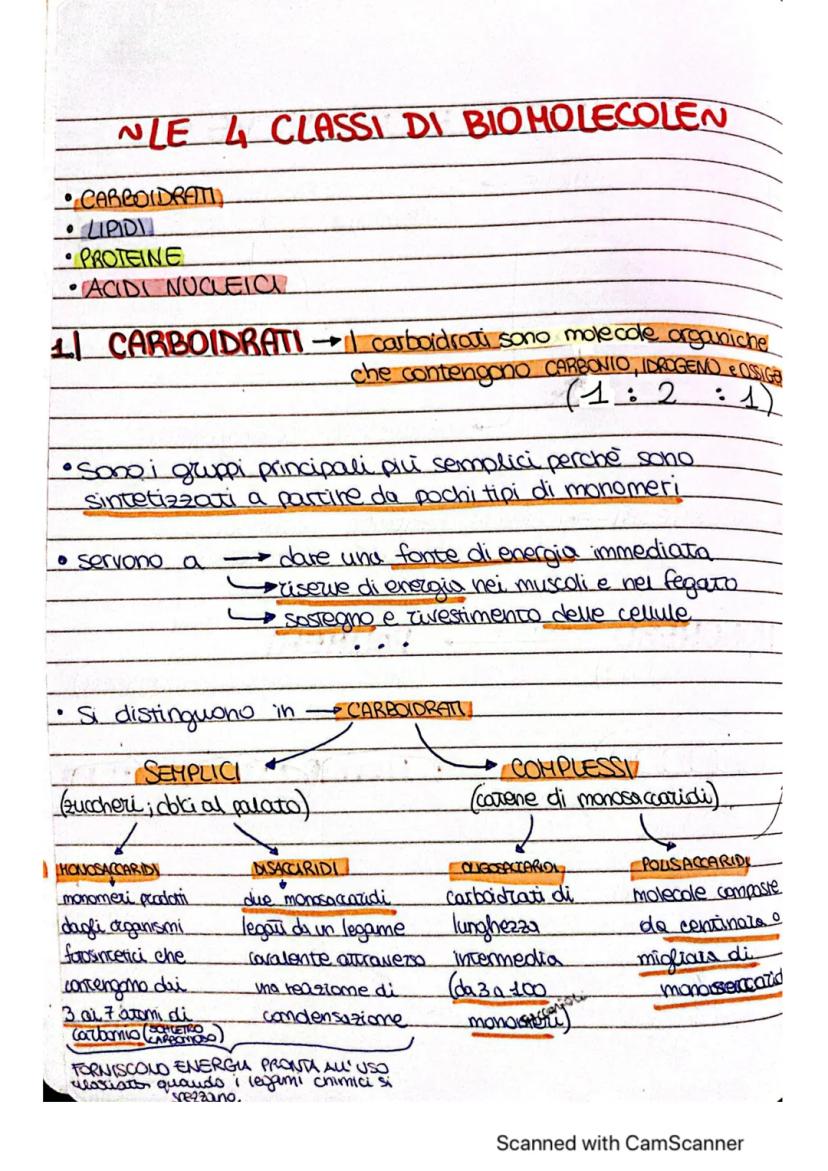 ~LE 4 CLASSI DI BIOMOLECOLE~
• CARBOIDRATI
• LIPIDI
• PROTEINE
• ACIDI NUCLEICI
1.| CARBOIDRATI → I carboidrati sono molecole organiche
che contengono CARBONIO, IDROGENO e OSSIGE
(1 : 2 : 1)
• Sono i gruppi principali più semplici perchè sono
sintetizzati a partire da pochi tipi di monomeri
• servono a → dare una fonte di energia immediata
↳ riserve di energia nei muscoli e nel fegato
↳ sostegno e rivestimento delle cellule
...
• Si distinguono in → CARBOIDRATI
SEMPLICI
(zuccheri; dolci al palato)
COMPLESSI
(catene di monosaccaridi)
MONOSACCARIDI
monomeri prodotti
dagli organismi
fotosintetici che
contengono dai
3 ai 7 atomi di
carbonio (SCHELETRO
CARBONIOSO)
DISACCARIDI
due monosaccaridi
legati da un legame
covalente attraverso
una reazione di
condensazione
FORNISCONO ENERGIA PRONTA ALL'USO
quando i legami chimici si
spezzano.
OLIGOSACCARIDI
carboidrati di
lunghezza
intermedia
(da 3 a 100
POLISACCARIDI
molecole composte
da centinaia o
migliaia di
monosaccarid
Scanned with CamScanner